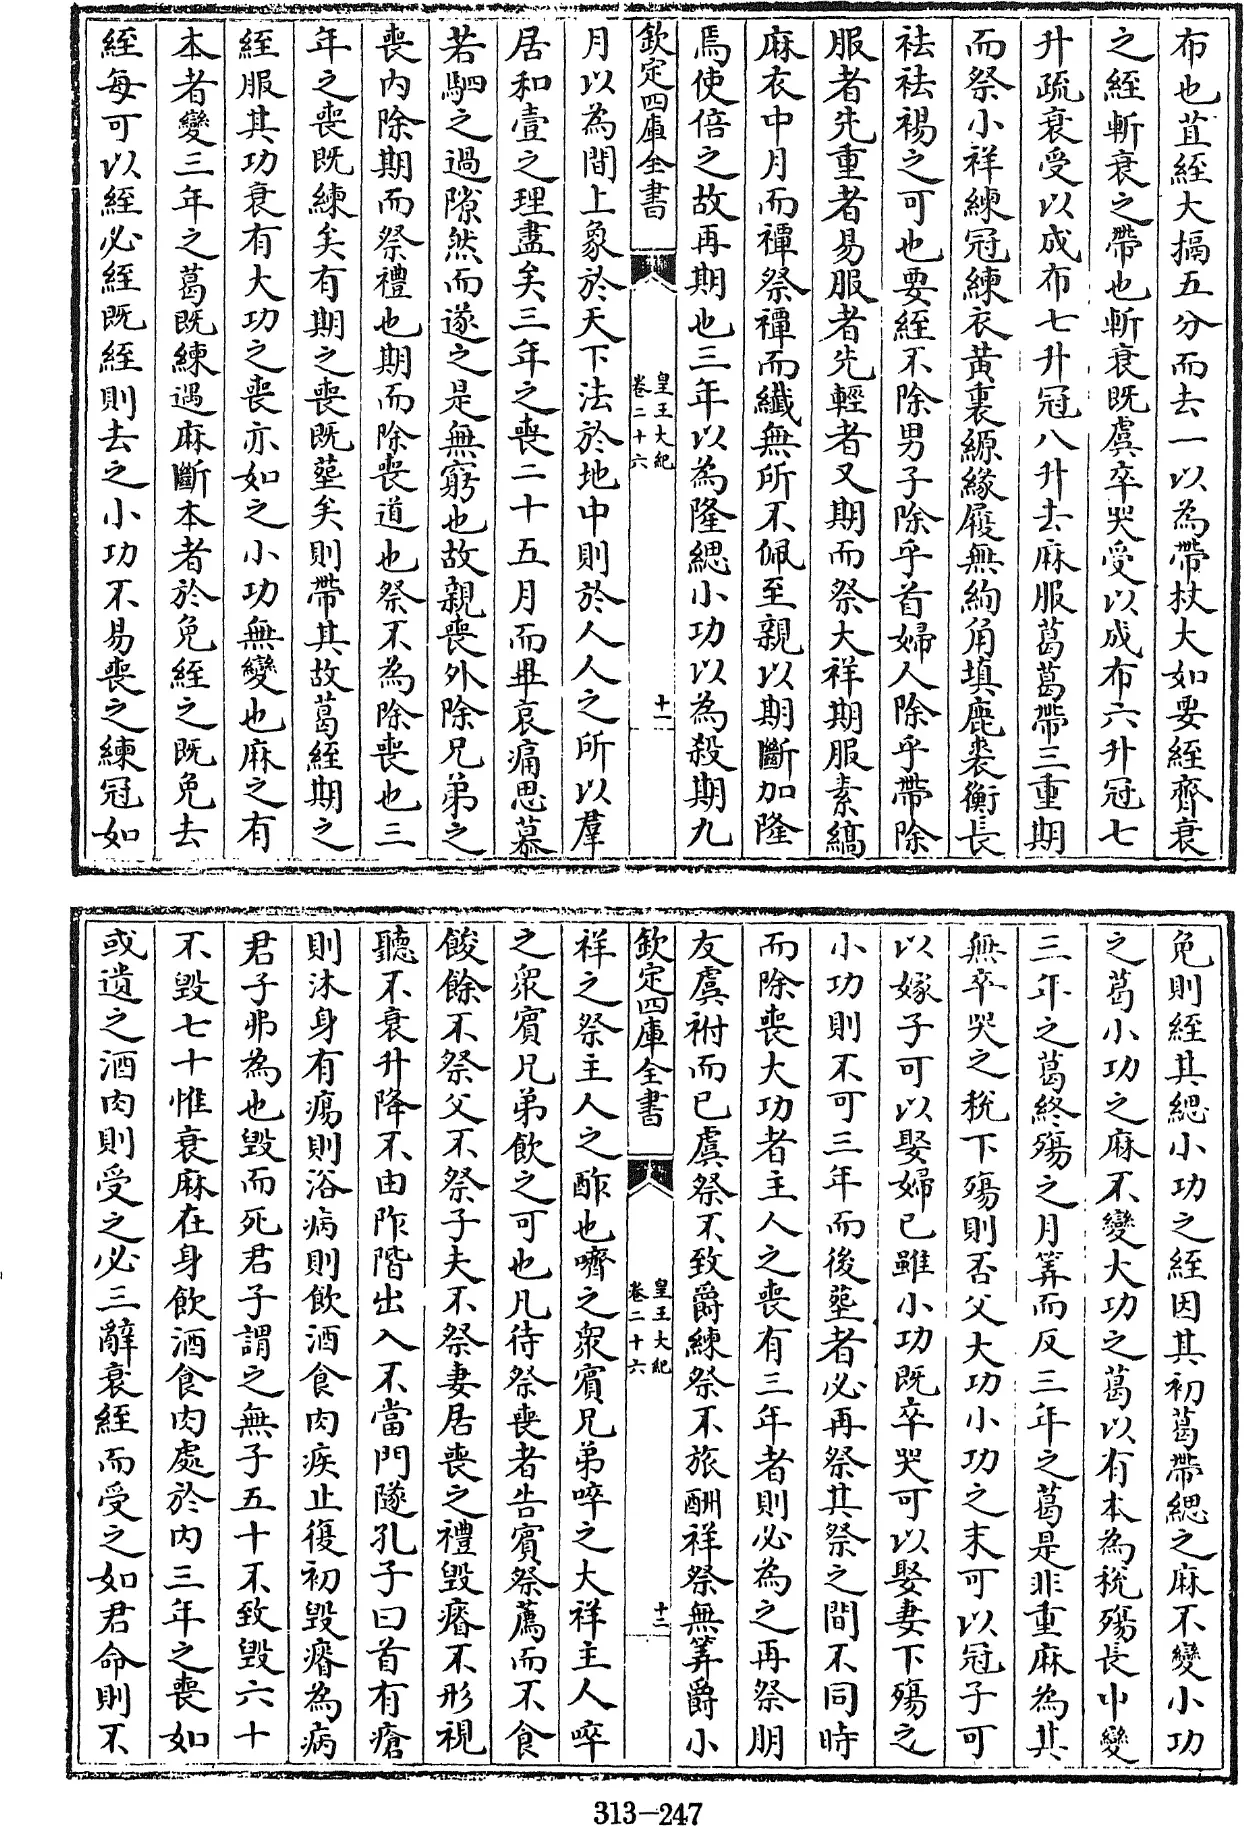 布也苴絰大搹五分而去一以為帶杖大如要絰齊衰
之絰斬衰之帶也斬衰既虞卒哭受以成布六升冠七
升疏衰受以成布七升冠八升去麻服葛葛帶三重期
而祭小祥練冠練衣黃裏縓緣履無絇角填鹿裘衡長
袪袪裼之可也要絰不除男子除乎首婦人除乎帶除
服者先重者易服者先輕者又期而祭大祥期服素縞
麻衣中月而禫祭禫而纖無所不佩至親以期斷加隆
焉使倍之故再期也三年以為隆緦小功以為殺期九
欽定四庫全書
皇王大紀
卷二十六
十一
月以為間上象於天下法於地中則於人人之所以羣
居和壹之理盡矣三年之喪二十五月而畢哀痛思慕
若駟之過隙然而遂之是無窮也故親喪外除兄弟之
喪內除期而祭禮也期而除喪道也祭不為除喪也三
年之喪既練矣有期之喪既塟矣則帶其故葛絰期之
絰服其功衰有大功之喪亦如之小功無變也麻之有
本者變三年之葛既練遇麻斷本者於免絰之既免去
絰每可以絰必絰既絰則去之小功不易喪之練冠如
免則絰其緦小功之絰因其初葛帶緦之麻不變小功
之葛小功之麻不變大功之葛以有本為稅殤長中變
三年之葛終殤之月筭而反三年之葛是非重麻為其
無卒哭之稅下殤則否父大功小功之末可以冠子可
以嫁子可以娶婦已雖小功既卒哭可以娶妻下殤之
小功則不可三年而後塟者必再祭其祭之間不同時
而除喪大功者主人之喪有三年者則必為之再祭朋
友虞祔而已虞祭不致爵練祭不旅酬祥祭無筭爵小
欽定四庫全書
皇王大紀
卷二十六
十二
祥之祭主人之酢也嚌之衆賓兄弟啐之大祥主人啐
之衆賓兄弟飲之可也凡待祭喪者告賓祭薦而不食
餕餘不祭父不祭子夫不祭妻居喪之禮毀瘠不形視
聽不衰升降不由阼階出入不當門隧孔子曰首有瘡
則沐身有瘍則浴病則飲酒食肉疾止復初毀瘠為病
君子弗為也毀而死君子謂之無子五十不致毀六十
不毀七十惟衰麻在身飲酒食肉處於內三年之喪如
或遺之酒肉則受之必三辭衰絰而受之如君命則不
313-247